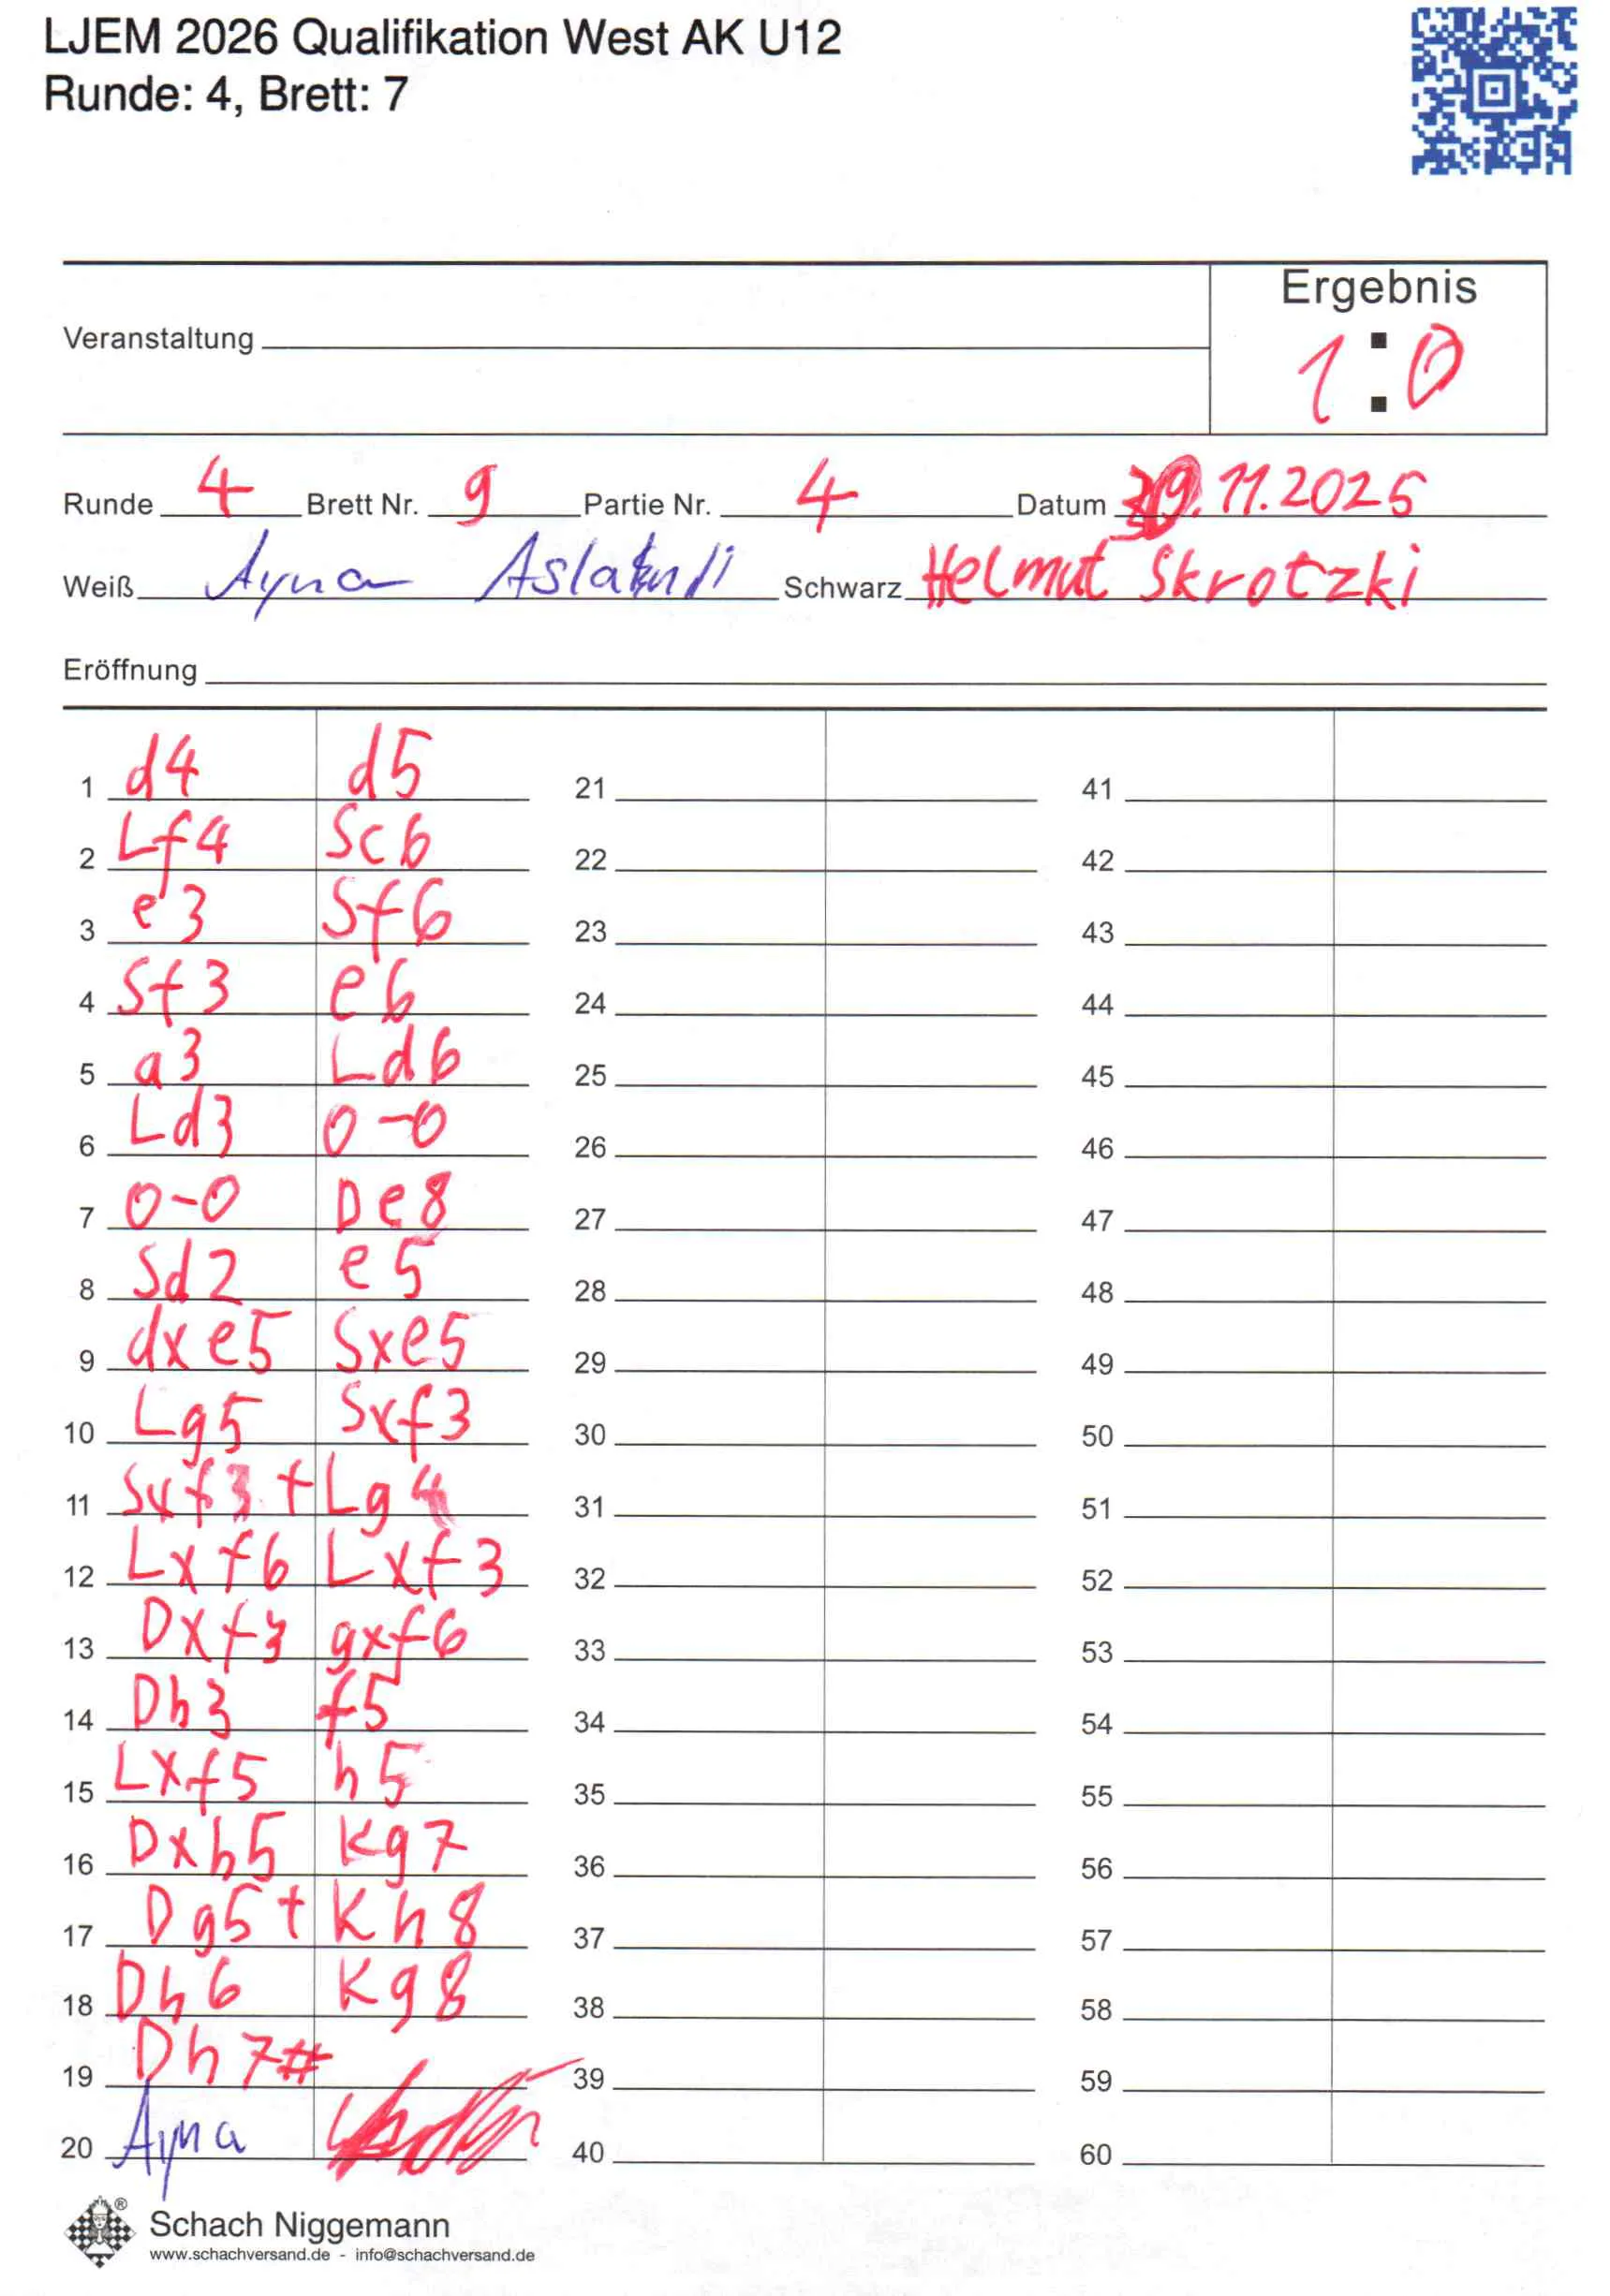 LJEM 2026 Qualifikation West AK U12
Runde: 4, Brett: 7
Ergebnis
Veranstaltung
1:0
Runde 4 Brett Nr. 9 Partie Nr. 4 Datum 30.11.2025
Weiß Ayna Schwarz Helmut Skrotzki
Eröffnung
1 d4 d5 21 41
2 Lf4 Sc6 22 42
3 e3 Sf6 23 43
4 Sf3 e6 24 44
5 a3 Ld6 25 45
6 Ld3 0-0 26 46
7 0-0 De8 27 47
8 Sd2 e5 28 48
9 dxe5 Sxe5 29 49
10 Lg5 Sxf3 30 50
11 Sxf3 + Lg4 31 51
12 Lxf6 Lxf3 32 52
13 Dxf3 gxf6 33 53
14 Dh3 f5 34 54
15 Lxf5 h5 35 55
16 Dxh5 Kg7 36 56
17 Dg5+ Kh8 37 57
18 Dh6 Kg8 38 58
19 Dh7# 39 59
20 Ayna 40 60
® Schach Niggemann
www.schachversand.de - info@schachversand.de